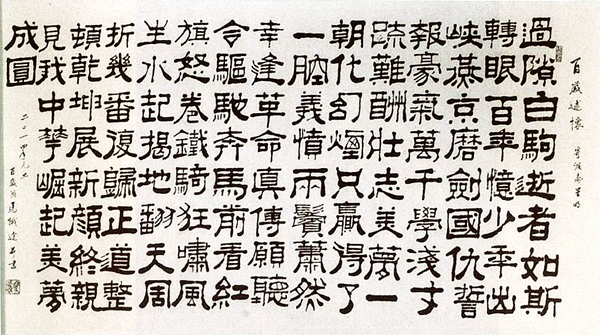 百歲述懷 寄調壽星明
過隙白駒逝者如斯
轉眼百年憶少年出
峽燕京磨劍國仇誓
報豪氣萬千學淺才
疏難酬壯志美夢一
朝化幻煙只贏得了
一腔義憤兩鬢蕭然
幸逢革命真傳願聽
令驅馳奔馬前看紅
旗怒卷鐵騎狂嘯風
生水起揭地翻天周
折幾番復歸正道整
頓乾坤展新顏終親
見我中華崛起美夢
成圓
二〇一四年元旦
百歲馬識途書